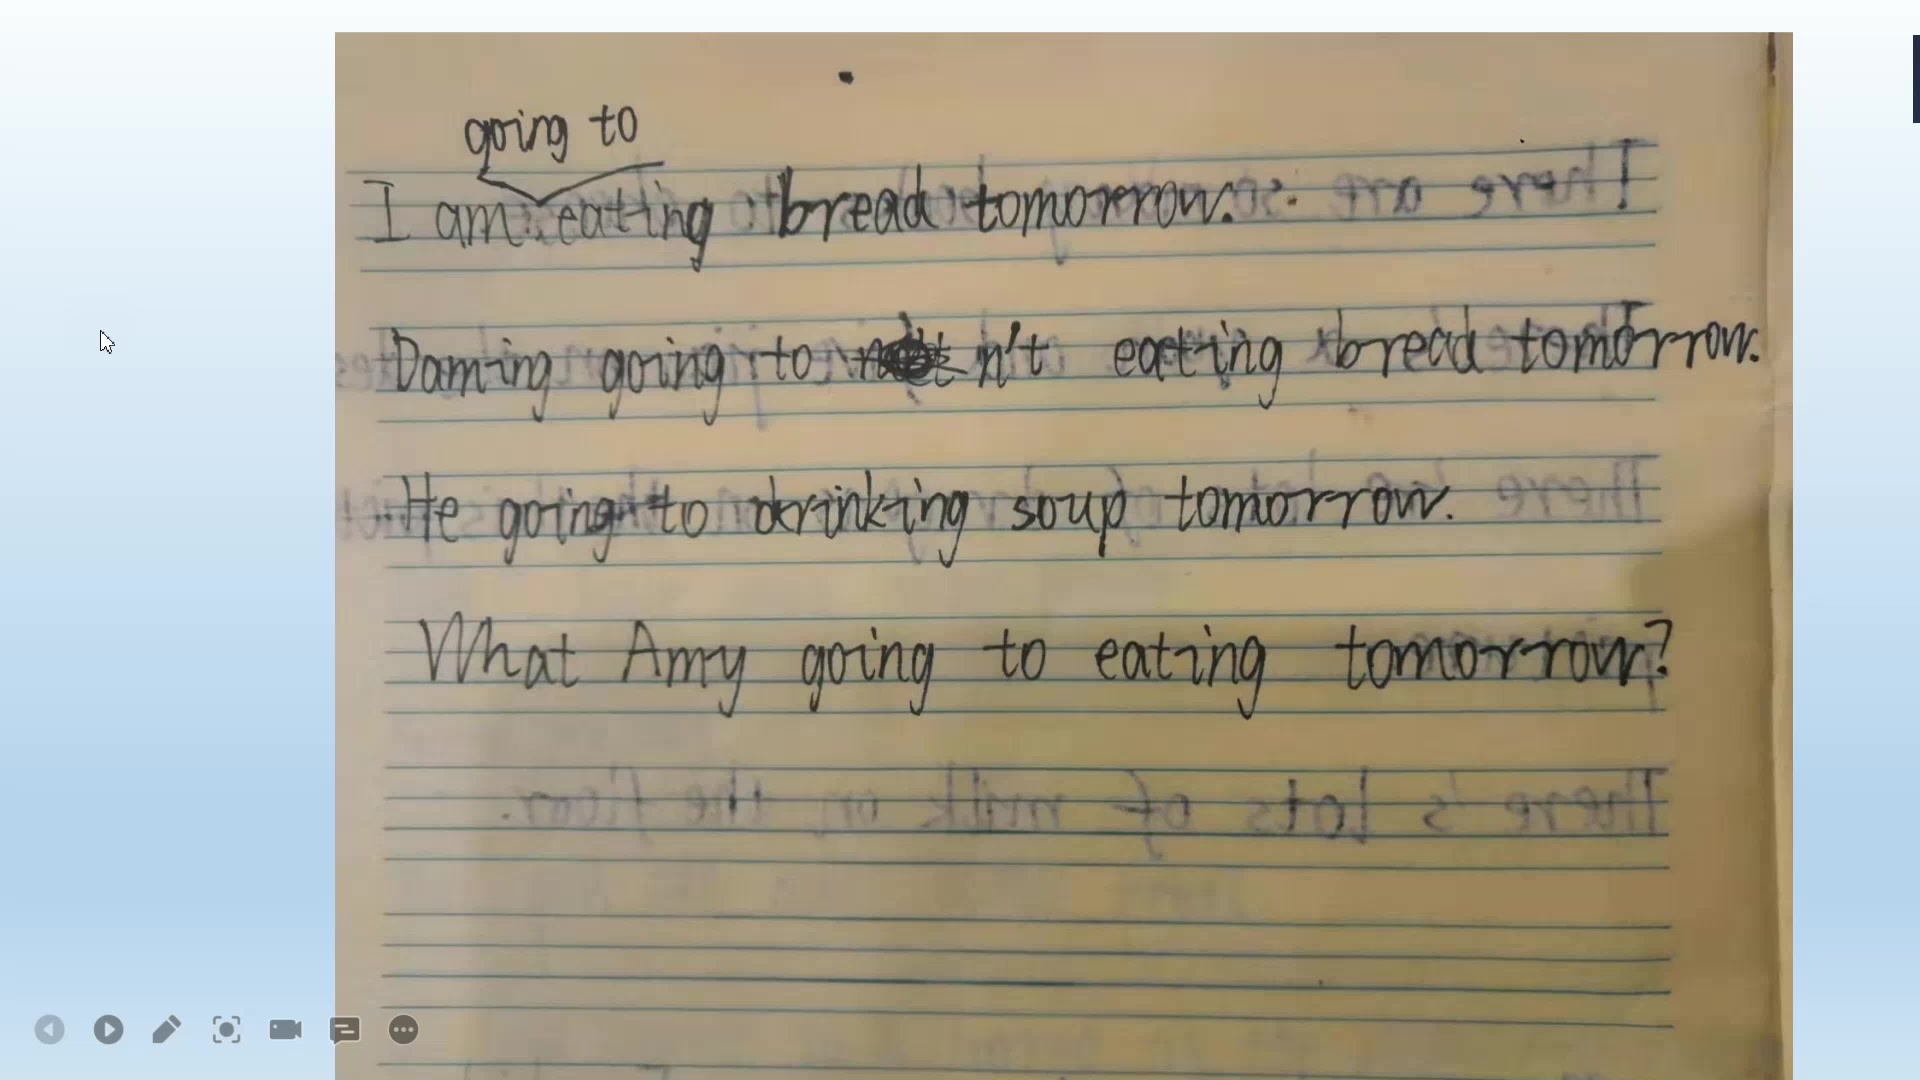 going to
I am eating bread tomorrow.
Daming going to n't eating bread tomorrow.
He going to drinking soup tomorrow.
What Amy going to eating tomorrow?
There's lots of milk on the floor.